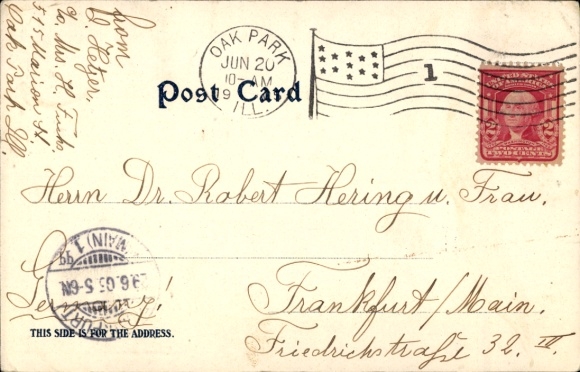 from
L. Hetzer.
c/o Mrs. H. Funk.
515 Marion St.
Oak Park Ill.
OAK PARK
JUN 20
10-AM
19
ILL.
1
Post Card
POSTAGE
TWO CENTS
Herrn Dr. Robert Hering u. Frau.
Germany!
MAIN) 1
bb
5-6N
Frankfurt/Main.
Friedrichstraße 32. IV.
THIS SIDE IS FOR THE ADDRESS.